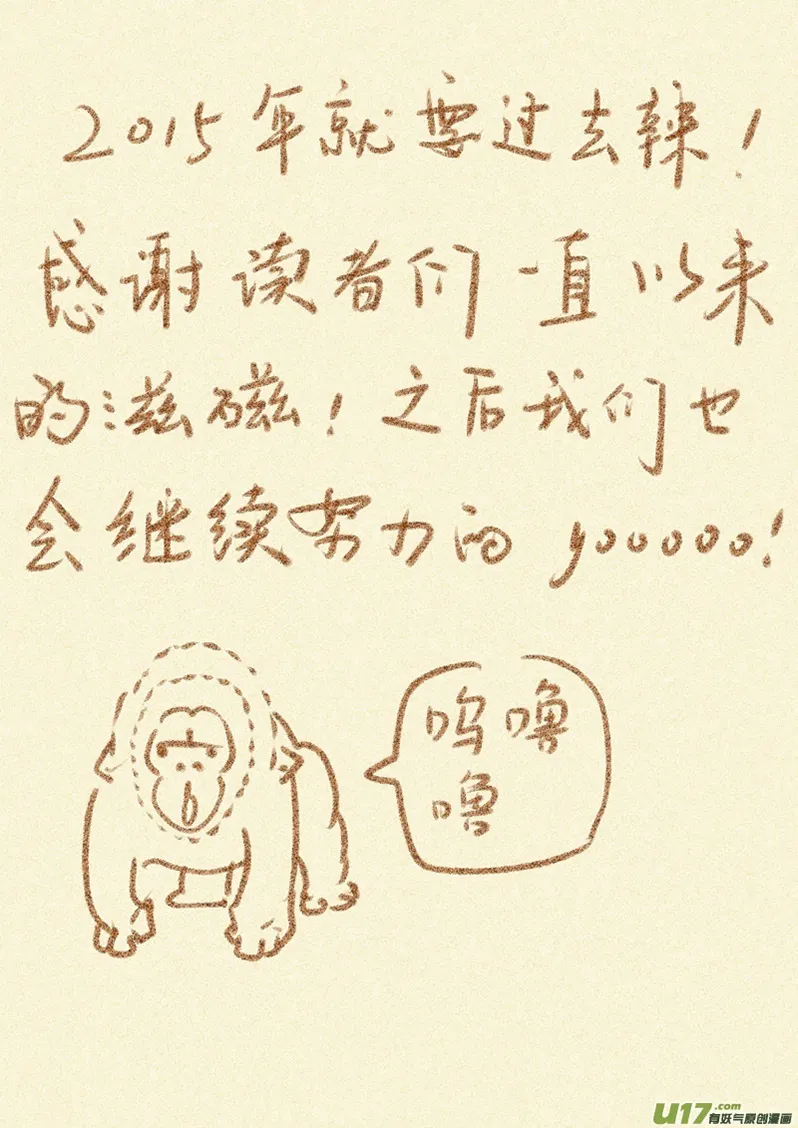 2015年就要过去辣！
感谢读者们一直以来
的滋磁！之后我们也
会继续努力的 yooooo!
呜噜
噜
U17.com
有妖气原创漫画